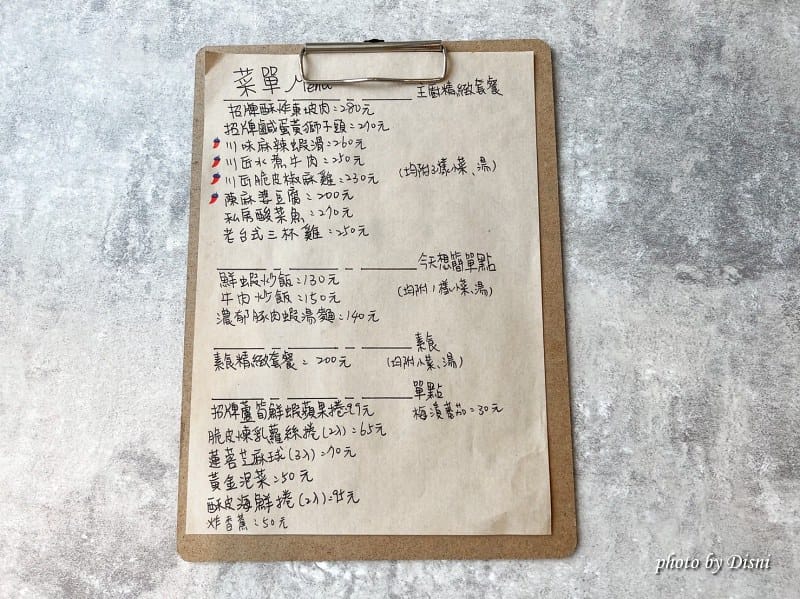 菜單 Menu
王廚精緻套餐
招牌酥炸東坡肉=280元
招牌鹹蛋黃獅子頭=270元
川味麻辣蝦滑=260元
川匠水煮牛肉=250元
(均附3樣小菜、湯)
川匠脆皮椒麻雞=230元
陳麻婆豆腐=200元
私房酸菜魚=270元
老台式三杯雞=250元
今天想簡單點
鮮蝦炒飯=130元
(均附1樣小菜、湯)
牛肉炒飯=150元
濃郁豚肉蝦湯麵=140元
素食
素食精緻套餐=200元
(均附小菜、湯)
單點
招牌蘆筍鮮蝦蘋果捲=99元
梅漬蕃茄=30元
脆皮煉乳蘿絲捲(2入)=65元
蓮蓉芝麻球(3入)=70元
黃金泡菜=50元
酥皮海鮮捲(2入)=95元
炸香蕉=50元
photo by Disni